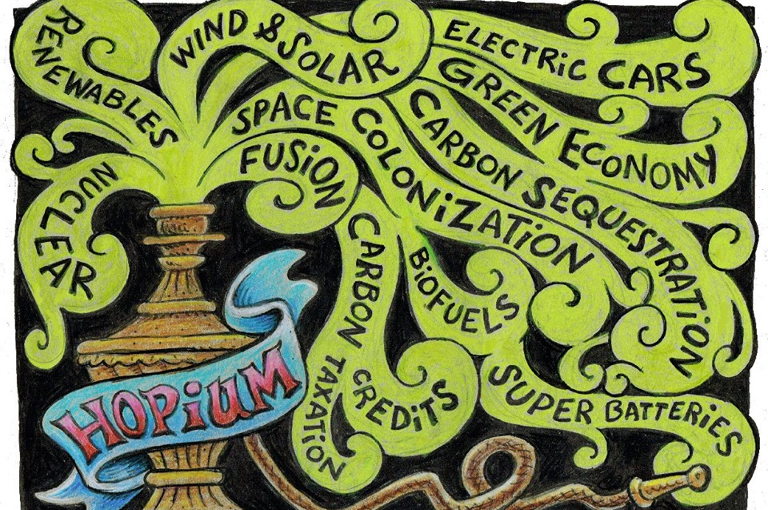 RENEWABLES
WIND & SOLAR
ELECTRIC CARS
GREEN ECONOMY
SPACE COLONIZATION
CARBON SEQUESTRATION
FUSION
NUCLEAR
CARBON TAXATION
CREDITS
BIOFUELS
SUPER BATTERIES
HOPIUM